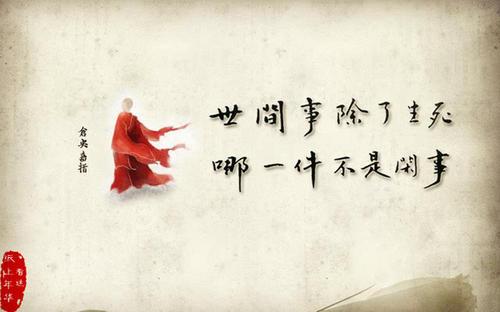 世間事除了生死
哪一件不是閑事
倉央嘉措
上年华